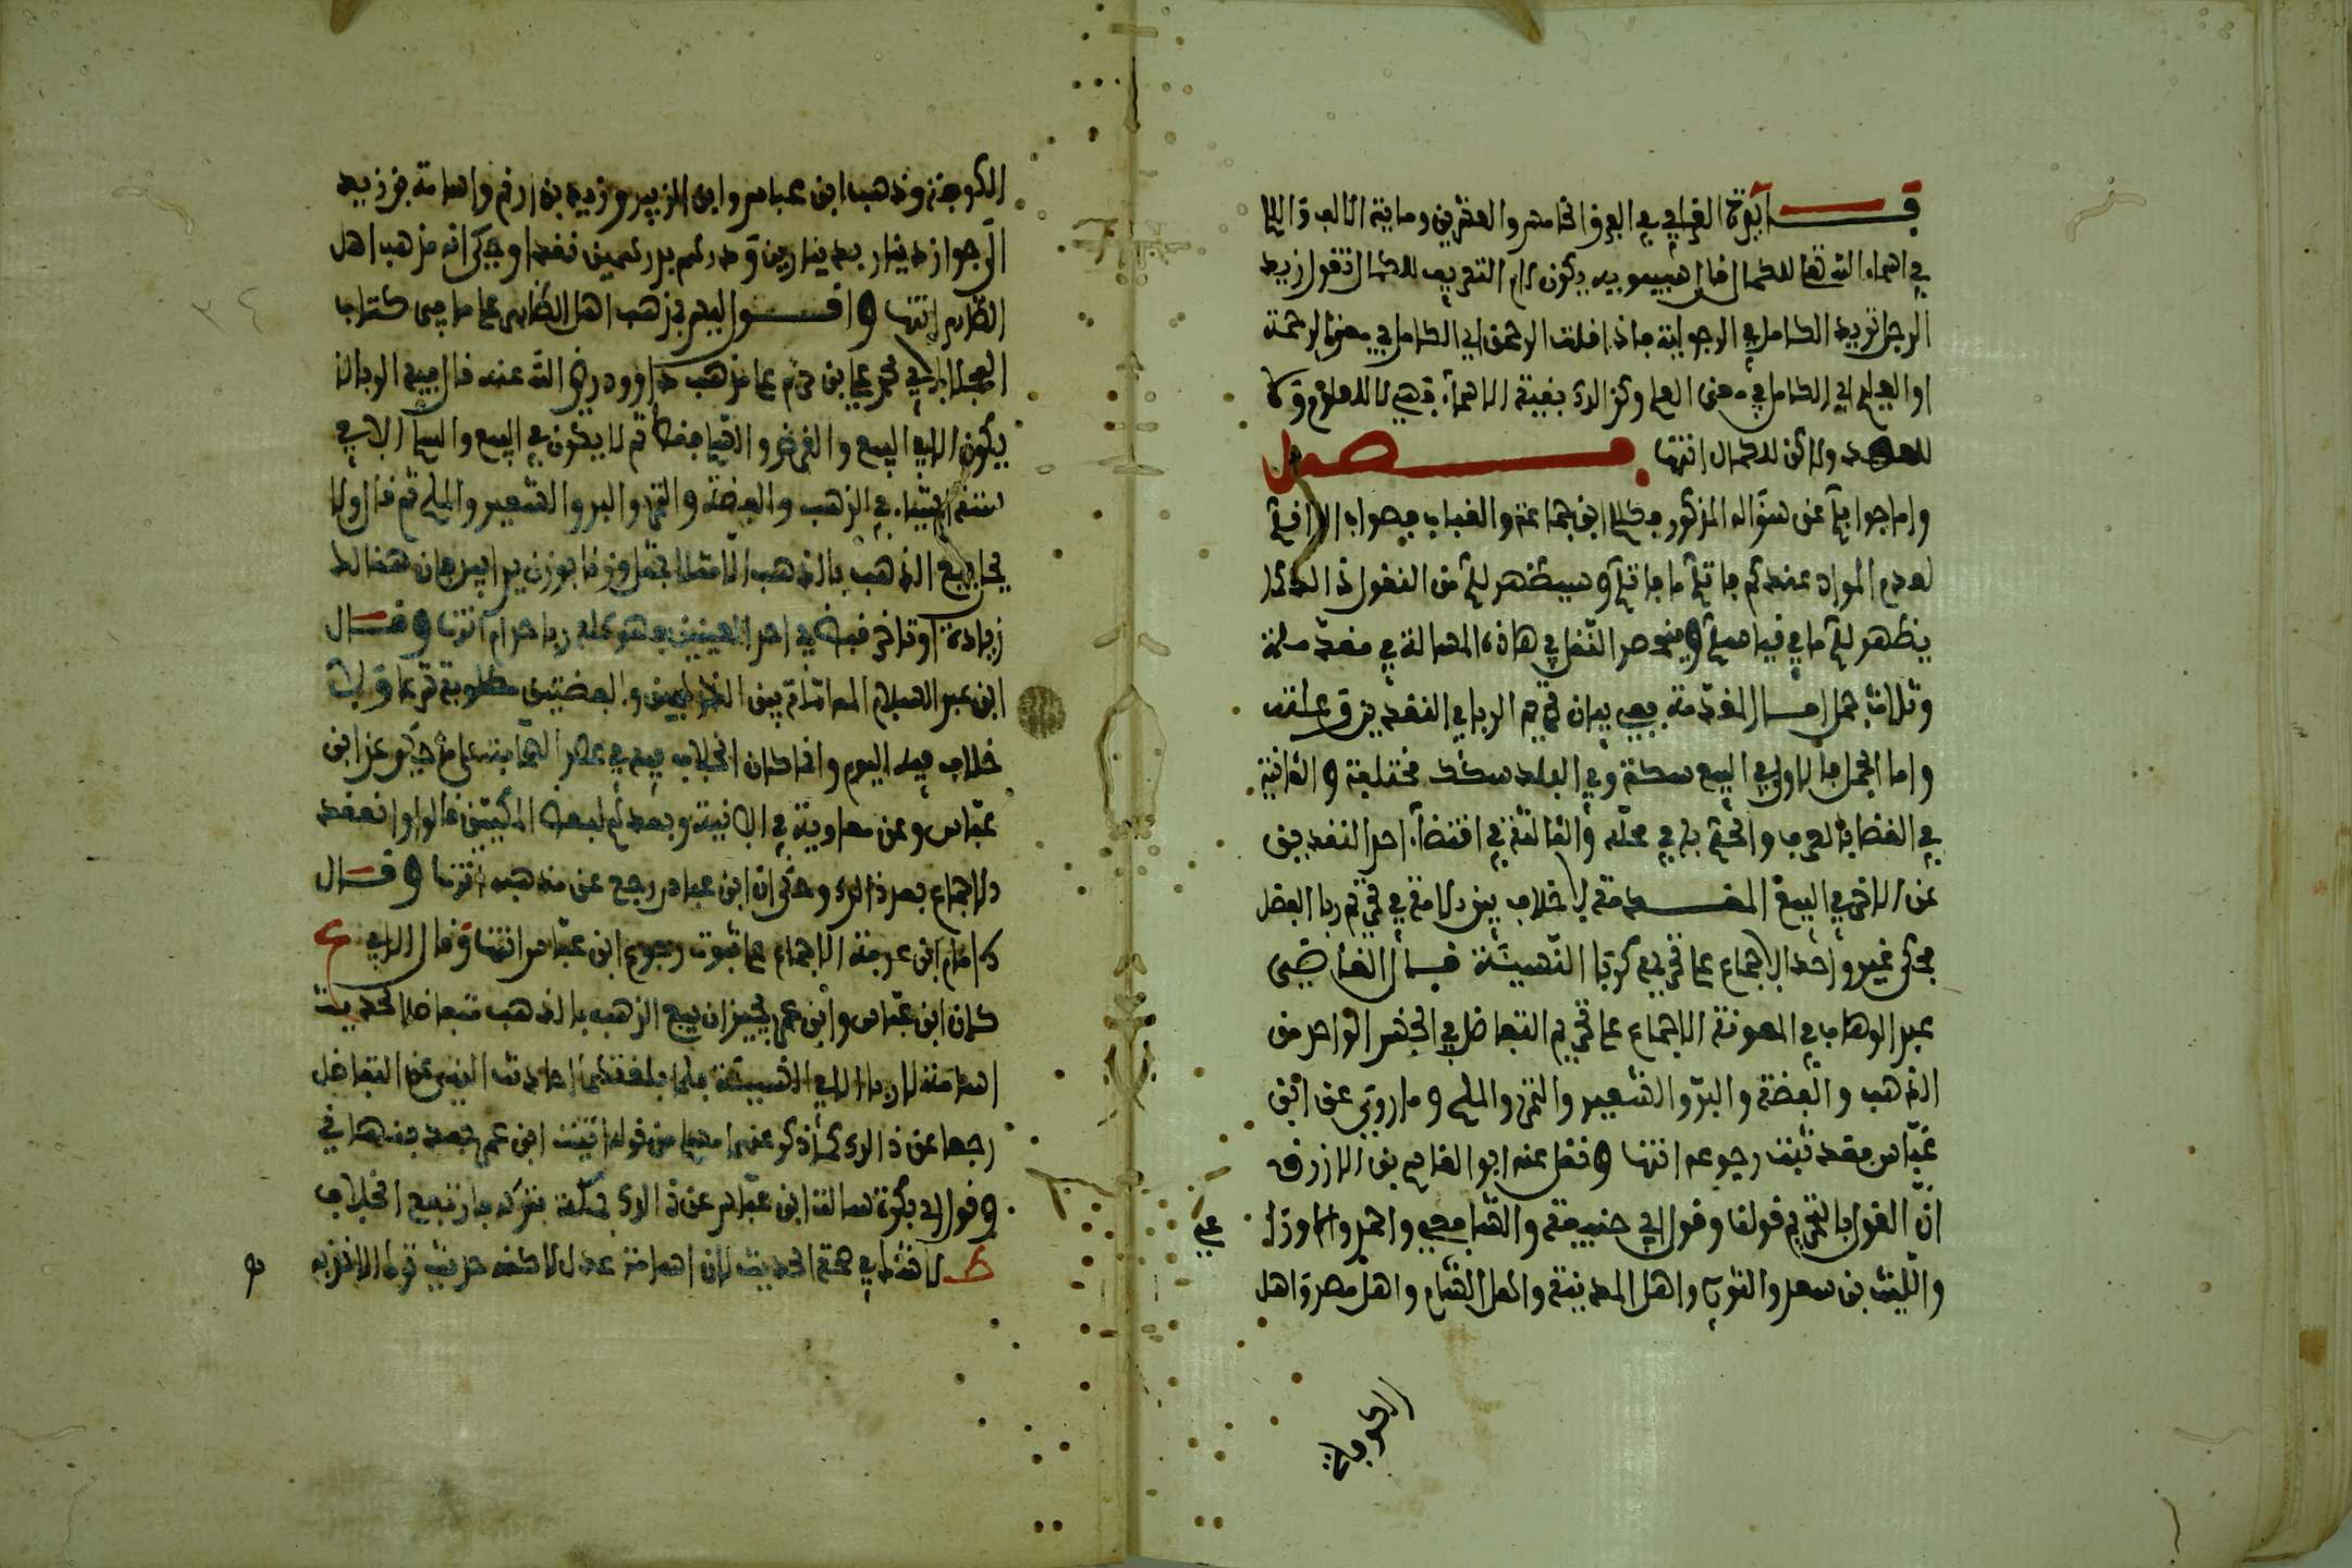 فايدة القرافي في الفرق الخامس والعشرين وماية الالف واللام
في اسماء الله تعالى للكمال قال سيبويه يكون لام التعريف للكمال تقول زيد
الرجل تريد الكامل في الرجولية فاذا قلت الرحمن اي الكامل في معنى الرحمة
او العليم اي الكامل في معنى العلم وكذالك بقية الاسماء فهي لا للعموم ولا
للعهد ولاكن للكمال انتهى فصل
واما جوابي عن سؤاله المذكور
لعدم المواد عندكم وسيظهر لك من النقول
يظهر لك ما في وينحصر النقل في هاذه المسالة في مقدمة
وثلاث جمل اما المقدمة ففي بيان تحريم الربا في النقدين وعلته
واما الجمل فالاولى في البيع بسكة وفي البلد سكك مختلفة والثانية
في القضاء بالعرف والحكم به في محله والثالثة في اقتضاء احد النقدين
عن الاخر في البيع المقدمة لا خلاف بين الامة في تحريم ربا الفضل
فحكى غير واحد الاجماع على تحريمه كربا النسيئة قال القاضي
عبد الوهاب في المعونة الاجماع على تحريم التفاضل في الجنس الواحد من
الذهب والفضة والبر والشعير والتمر والملح وما روي عن ابن
عباس فقد ثبت رجوعه انتهى ونقل عنه ابو القاسم بن الازرق
ان القول بالتحريم قولنا وقول ابي حنيفة والشافعي واحمد والاوزا
عي
والليث بن سعد والثوري واهل المدينة واهل الشام واهل مصر واهل
الكوفة
الكوفة وذهب ابن عباس وابن الزبير وزيد بن ارقم واسامة بن زيد
الى جواز دينار بدينارين ودرهم بدرهمين نقدا وحكي انه مذهب اهل
الظاهر انتهى واقول اليوم مذهب اهل الظاهر على ما في كتاب
المجلى لابي محمد علي بن حزم على مذهب داوود رضي الله عنه قال في الربا لا
يكون الا في البيع والقرض والسلم فقط ثم لا يكون في البيع والسلم الا في
ستة اشياء في الذهب والفضة والتمر والبر والشعير والملح ثم قال ولا
يحل بيع الذهب بالذهب الا مثلا بمثل وزنا بوزن يدا بيد فان هنالك
زيادة او تاخر قبض في احد العينين فهو كله ربا حرام انتهى وقال
ابن عبد السلام المماثلة بين الذهبين والفضتين مطلوبة ثم على ذلك لا
خلاف فيه اليوم وانما كان الخلاف فيه في عصر الصحابة على ما حكي عن ابن
عباس وعن معاوية في الانية وبعدهم لبعض المكيين قالوا وانعقد
الاجماع بعد ذالك وحكي ان ابن عباس رجع عن مذهبه انتهى وقال
الامام ابن عرفة الاجماع على ثبوت رجوع ابن عباس انتهى وقال الابي ع
كان ابن عباس وابن عمر يجيزان بيع الذهب بالذهب متفاضلا لحديث
اسامة لا ربا الا في النسيئة فلما بلغتهما احاديث النهي عن التفاضل
رجعا عن ذالك كما ذكر عنهما مسلم من قوله اتيت ابن عمر بعد فنهاني
وقول ابي بكرة سالت ابن عباس عن ذالك بمكة فكرهه فارتفع الخلاف
ط لا شك في صحة الحديث لان اسامة عدل لاكنه حديث ترك الاخذ به